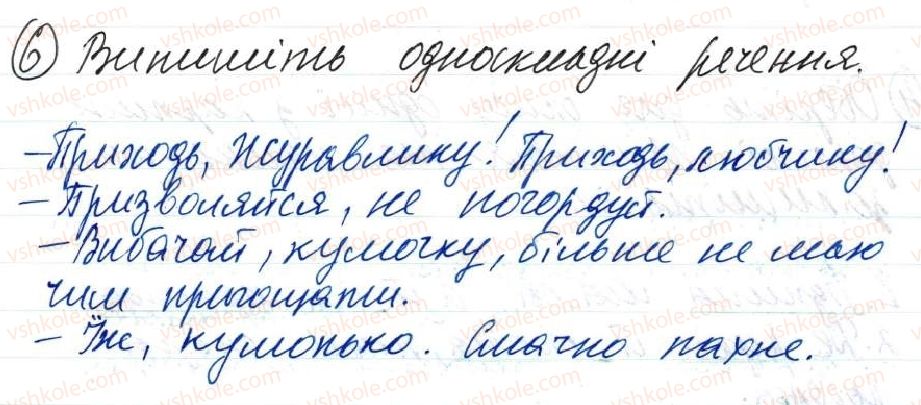 6 Випишіть односкладні речення.
- Приходь, Журавлику! Приходь, любчику!
- Призволяйся, не погордуй.
- Вибачай, кумочку, більше не маю
чим пригощати.
- Їж, кумонько. Смачно пахне.